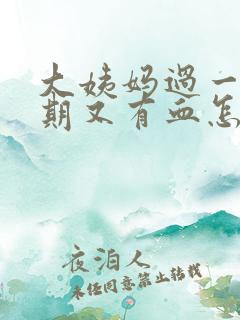 大姨妈过一
期又有血怎
夜泊人
未经同意禁止转载